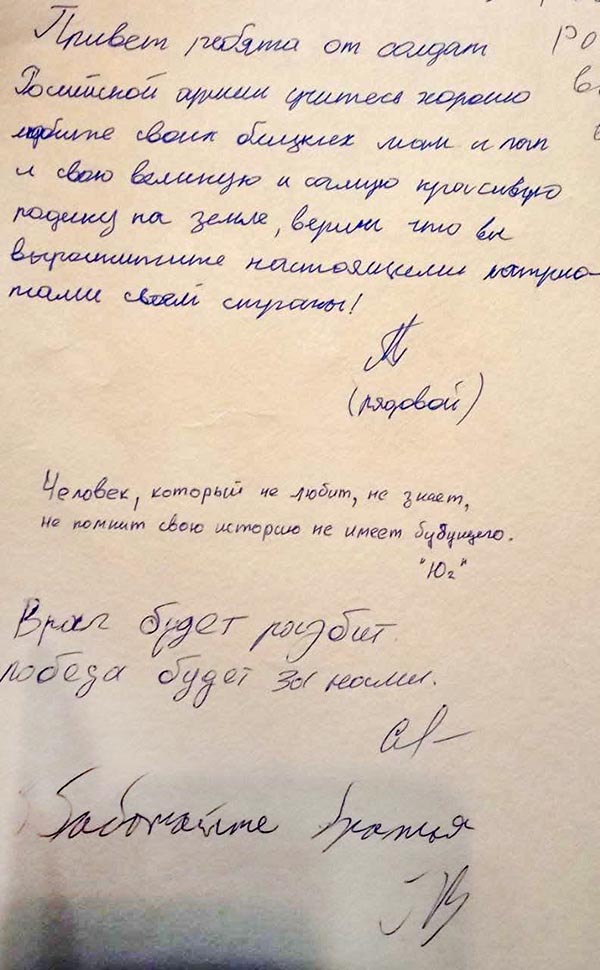 Привет ребята от солдат
Росийской армии учитесь хорошо
любите своих близких мам и пап
и свою великую и самую красивую
родину на земле, верим что вы
вырастите настоящими патрио-
тами своей страны!
(рядовой)
Человек, который не любит, не знает,
не помнит свою историю не имеет будущего.
"Юг"
Враг будет разбит.
победа будет за нами.
Работайте братья